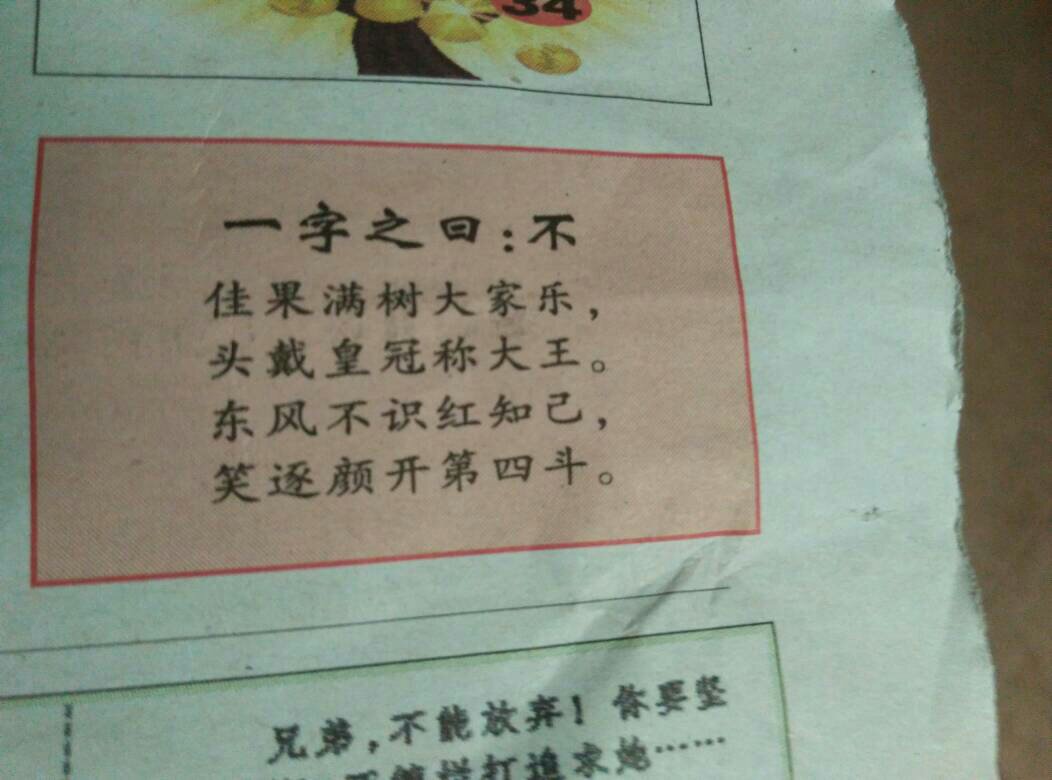 34
一字之曰:不
佳果满树大家乐，
头戴皇冠称大王。
东风不识红知己，
笑逐颜开第四斗。
兄弟，不能放弃！你要坚
打追求她……